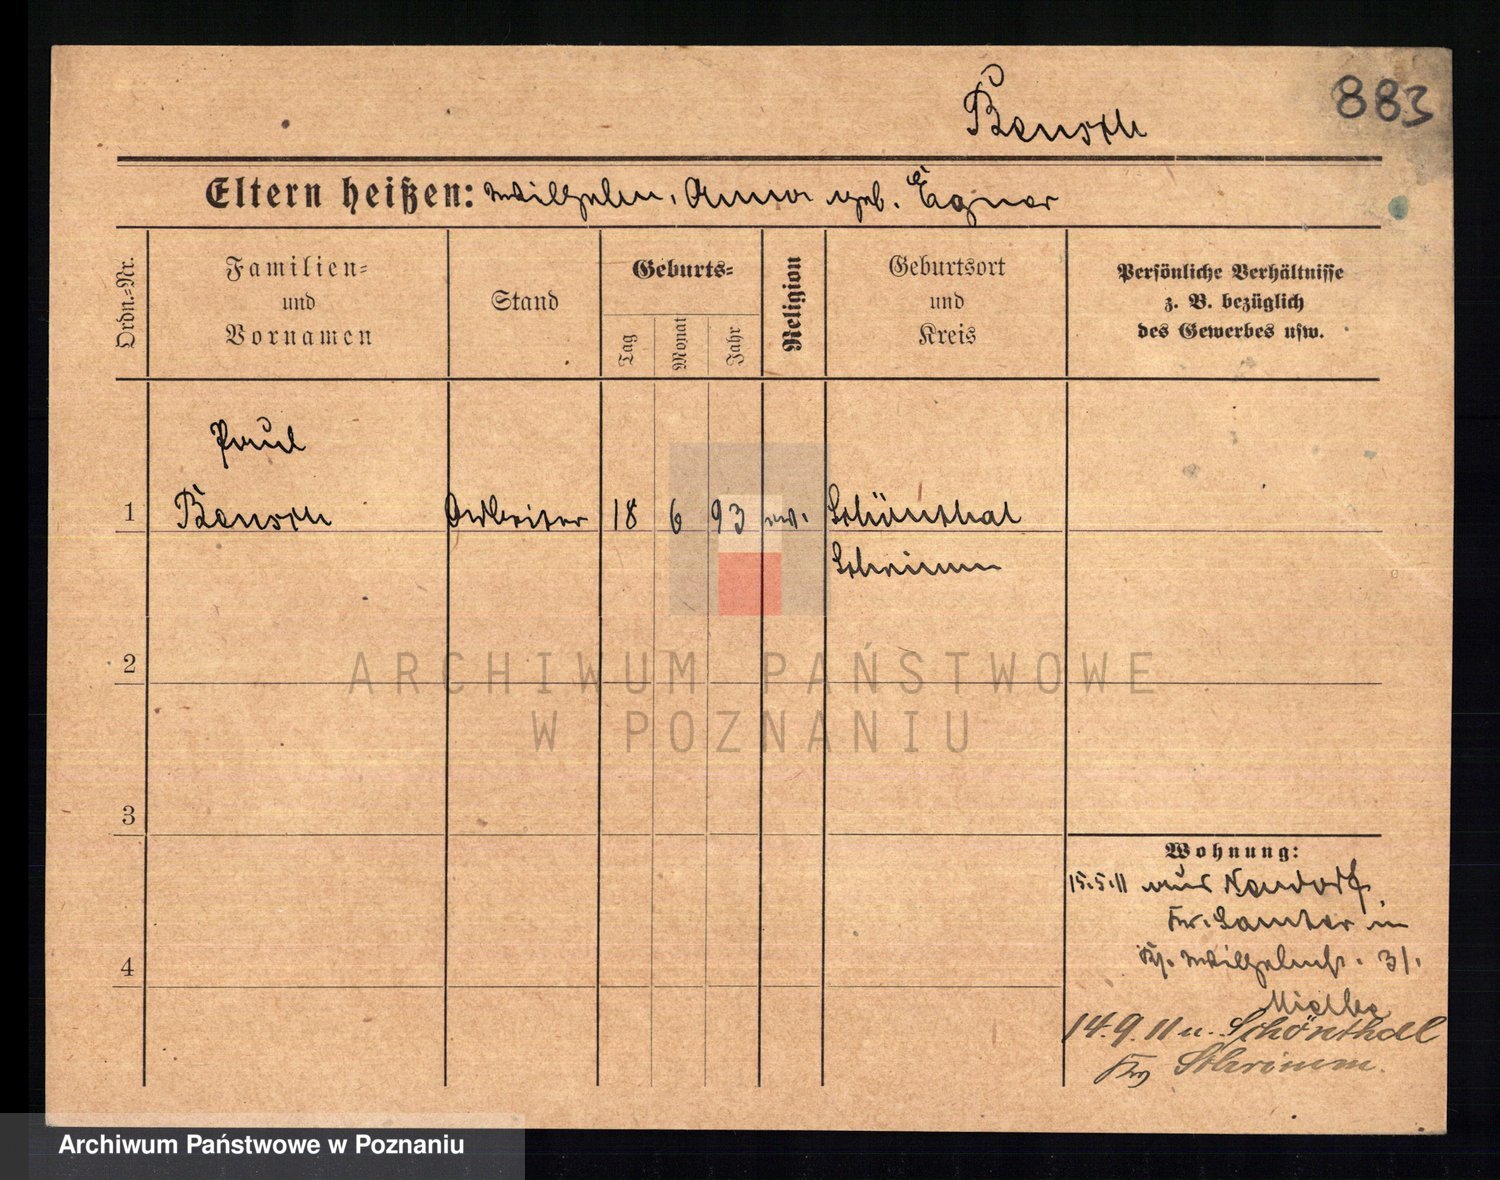 883
Bensch
Eltern heißen: Wilhelm, Anna geb. Egner
Ordn.-Nr.
Familien-
und
Vornamen
Stand
Geburts-
Tag
Monat
Jahr
Religion
Geburtsort
und
Kreis
Persönliche Verhältnisse
z. B. bezüglich
des Gewerbes usw.
Paul
1 Bensch Arbeiter 18 6 93 ev. Schönthal
Schrimm
2
3
4
Wohnung:
15.5.11 aus Neudorf
Kr. Samter in
Wilhelmstr. 31.
Mielke
14.9.11 n. Schönthal
Krs Schrimm.
ARCHIWUM PAŃSTWOWE
W POZNANIU
Archiwum Państwowe w Poznaniu